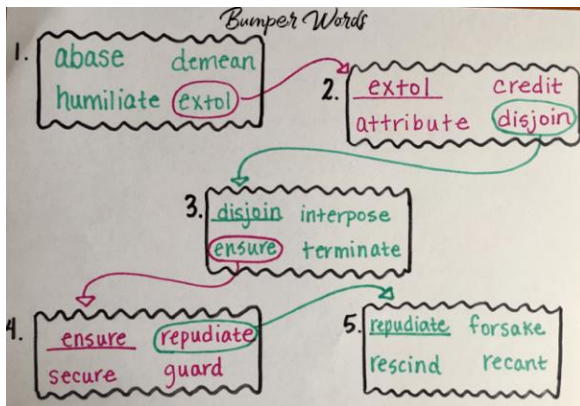 Bumper Words
1. abase demean
humiliate extol
2. extol credit
attribute disjoin
3. disjoin interpose
ensure terminate
4. ensure repudiate
secure guard
5. repudiate forsake
rescind recant